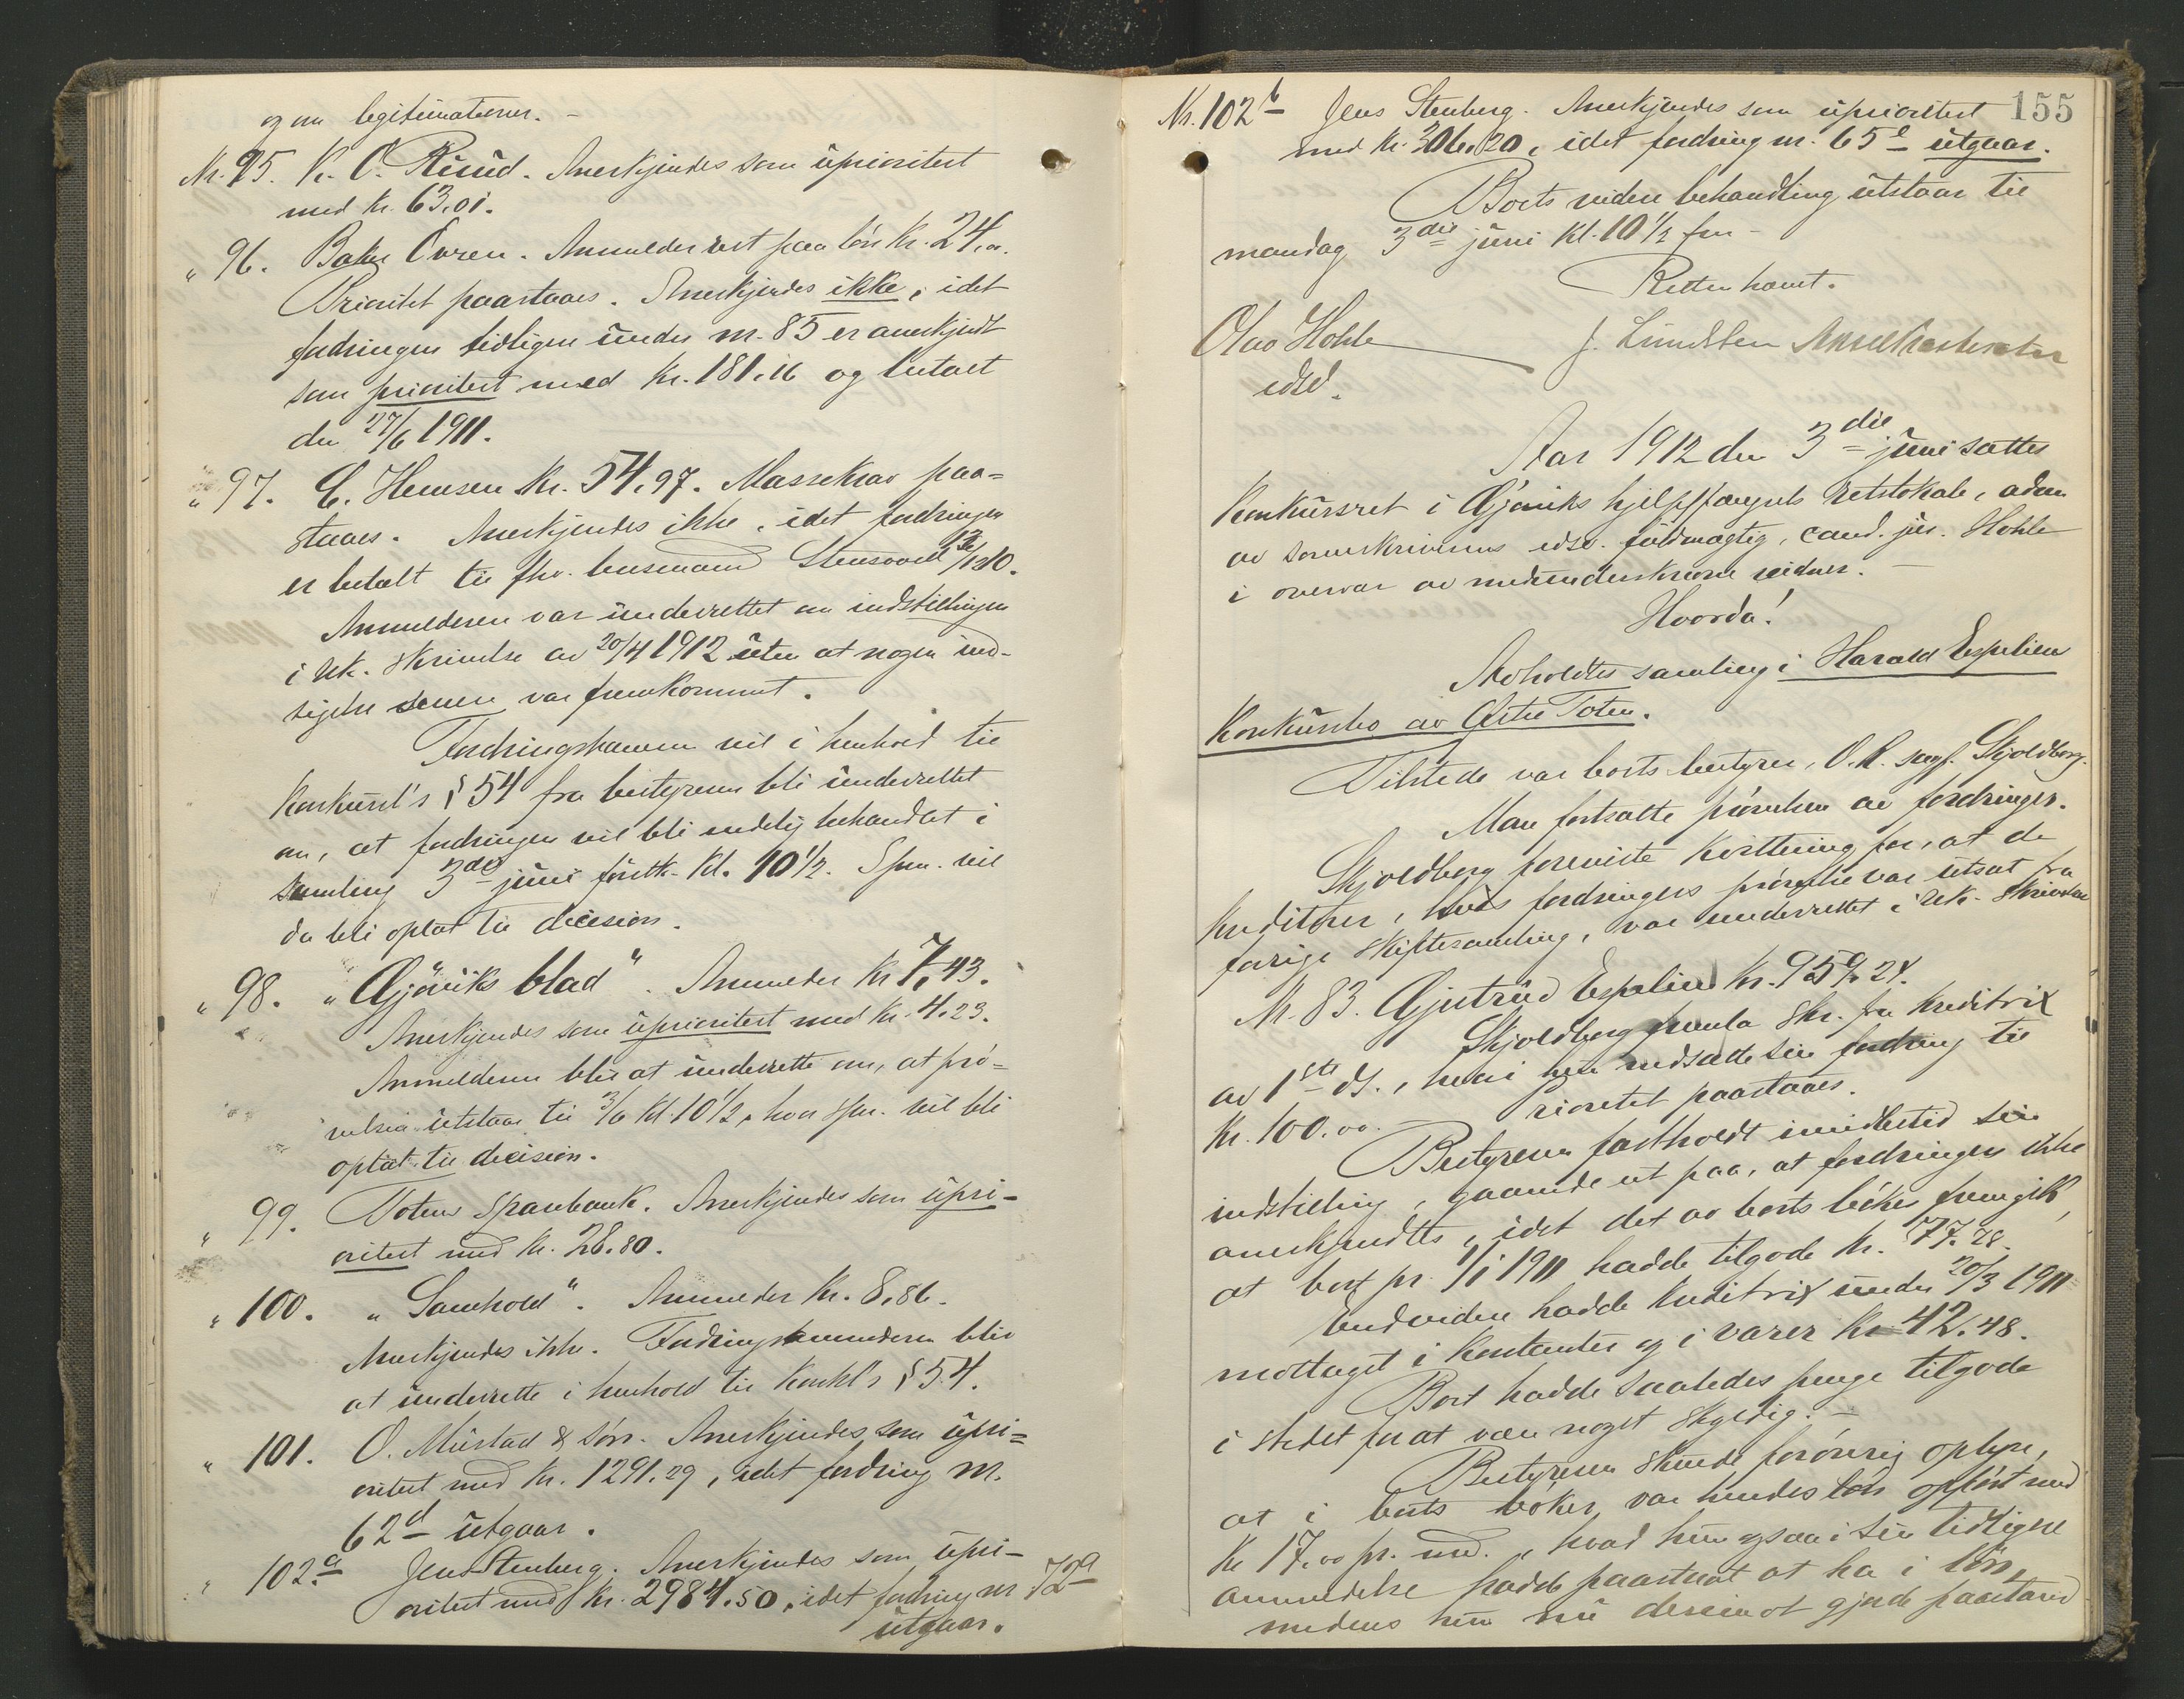 og om legitimationen. -
Nr. 95. K. O. Ruud. Anerkjendes som uprioritert
med kr. 63,01.
" 96. Baker Evren. Anmelder rest paa løn kr. 24,00.
Prioritet paastaaes. Anerkjendes ikke, idet
fordringen tidligere under nr. 85 er anerkjendt
som prioritert med kr. 181,16 og betalt
den 27/6 1911.
" 97. C. Hemsen kr. 54,97. Massekrav paa-
staaes. Anerkjendes ikke, idet fordringen
er betalt til fhv. lensmand Stensvold
Anmelderen var underrettet om indstillingen
i rek. skrivelse av 20/4 1912 uten at nogen ind-
sigelse senere var fremkommet.
Fordringshaveren vil i henhold til
konkursl's § 54 fra bestyreren bli underrettet
om, at fordringen vil bli endelig behandlet i
samling 3die juni førstk. kl. 10½. Spm. vil
da bli optat til decision.
" 98. "Gjøviks blad". Anmelder kr. 7,43.
Anerkjendes som uprioritert med kr. 4,23.
Anmelderen blir at underrette om, at prø-
velsen utstaar til 3/6 kl. 10½, hvor spm. vil bli
optat til decision.
" 99. Totens Sparebank. Anerkjendes som upri-
oritert med kr. 28.80.
" 100. "Samhold". Anmelder kr. 8,86.
Anerkjendes ikke. Fordringsanmelderen blir
at underrette i henhold til konkl's § 54.
" 101. O. Mustad & Søn. Anerkjendes som upri-
oritert med kr. 1291.29, idet fordring nr.
62d utgaar.
" 102a Jens Stenberg. Anerkjendes som upri-
oritert med kr. 2984.50, idet fordring nr 72a
utgaar.
155
Nr. 102b Jens Stenberg. Anerkjendes som uprioritert
med kr. 306,20, idet fordring nr. 65e utgaar.
Boets videre behandling utstaar til
mandag 3die juni kl. 10½ fm -
Retten hævet.
Olav Hohle J. Lundsten
edsv.
Aar 1912 den 3die juni sattes
konkursret i Gjøviks hjelpefængsels retslokale, adm.
av sorenskriverens edsv. fuldmægtig, cand. jur. Hohle
i overvær av medunderskrevne vidner. -
Hvorda!
Avholdtes samling i Harald Espelien
konkursbo av Østre Toten.
Tilstede var boets bestyrer, O.R. sagf. Skjoldborg.
Man fortsatte prøvelsen av fordringer.
Skjoldberg foreviste kvittering for, at de
kreditorer, hvis fordringers prøvelse var utsat fra
forrige skiftesamling, var underrettet i rek. skrivelse
Nr. 83. Gjertrud Espelien kr. 959,24.
Skjoldberg fremla skr. fra kreditrix
av 1ste ds., hvori hun nedsatte sin fordring til
kr. 100.00. Prioritet paastaaes.
Bestyreren fastholdt imidlertid sin
indstilling, gaaende ut paa, at fordringen ikke
anerkjendtes, idet det av boets bøker fremgik,
at boet pr. 1/1 1911 hadde tilgode kr. 77.28.
Endvidere hadde kreditrix under 20/3 1911
mottaget i kontanter og i varer kr 42.48.
Boet hadde saaledes penge tilgode
i stedet for at være noget skyldig. -
Bestyreren kunde forøvrig oplyse,
at i boets bøker var hendes løn opført med
kr 17,00 pr. md., hvad hun ogsaa i sin tidligere
anmeldelse hadde paastaat at ha i løn,
medens hun nu derimot gjorde paastand